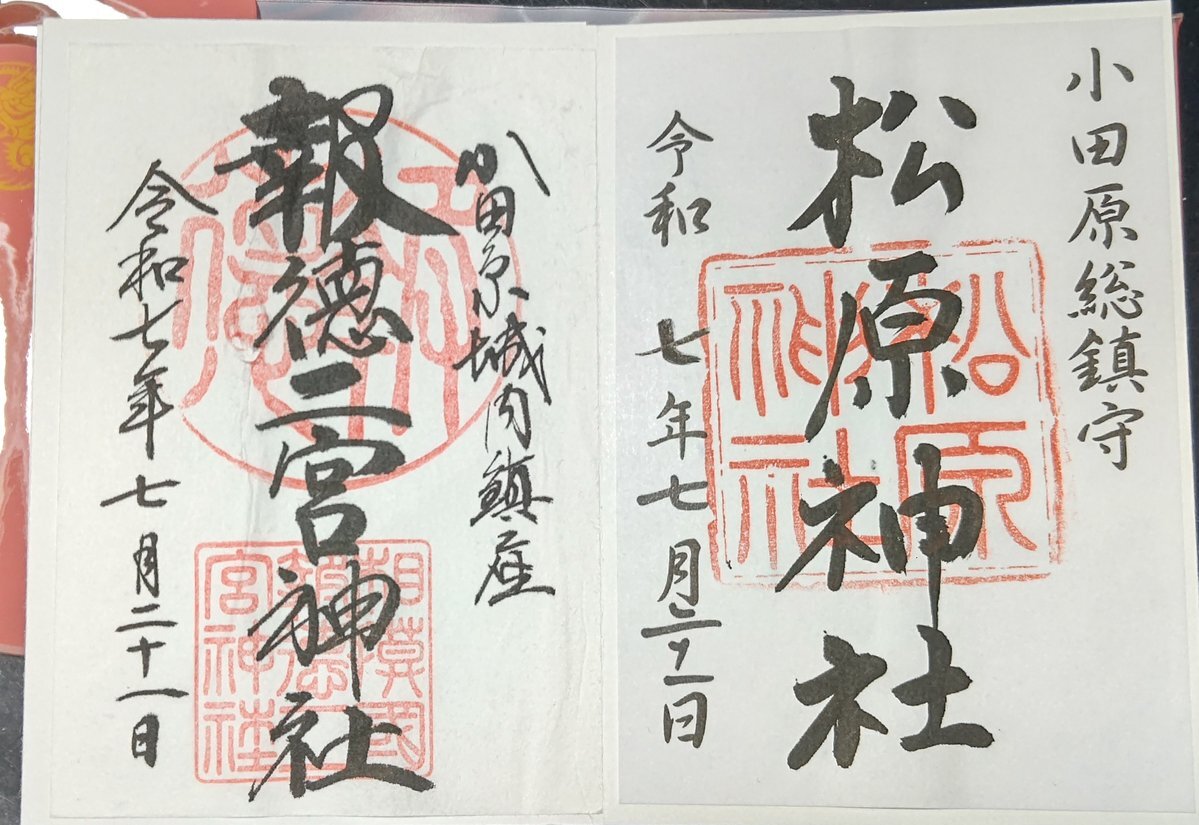 小田原総鎮守
松原神社
松原神社
令和七年七月二十一日
小田原城内鎮座
報徳二宮神社
相模國
報徳二
宮神社
令和七年七月二十一日